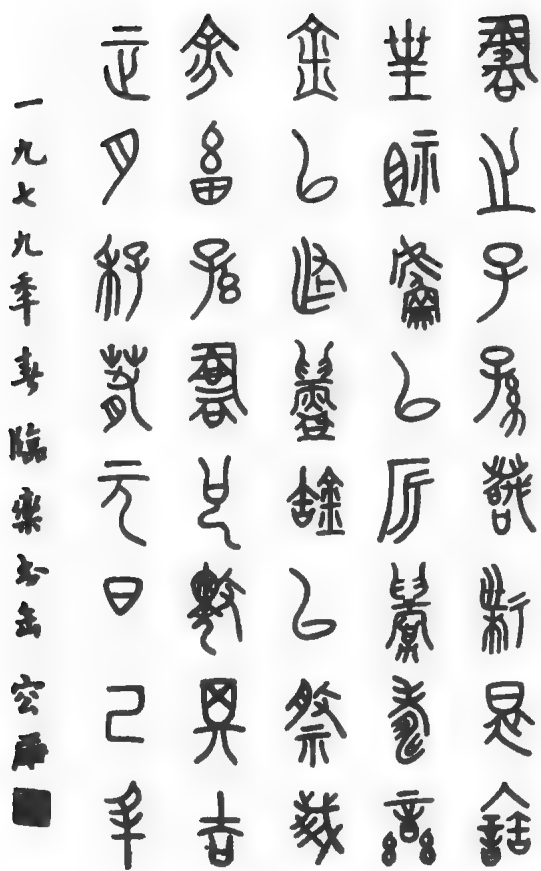 正月季春元日己丑
余畜孫書巳擇其吉
金以作鑄缶以祭我
皇祖虘以祈眉壽欒
書之子孫萬世是寶
一九七九年春臨欒书缶 容庚